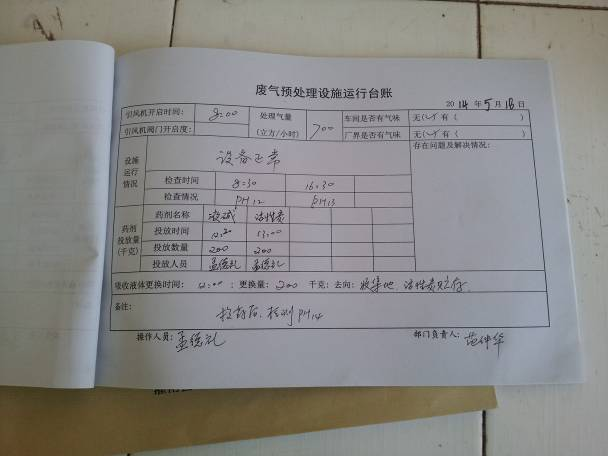 废气预处理设施运行台账
2014年5月18日
引风机开启时间： 8:00 处理气量（立方/小时） 700 车间是否有气味 无(✓) 有（ ）
引风机阀门开启度： 厂界是否有气味 无(✓) 有（ ）
设施运行情况 设备正常 存在问题及解决情况：
检查时间 8:30 16:30
检查情况 PH12 PH13
药剂投放量(千克) 药剂名称 液碱
投放时间 13:00
投放数量 200 200
投放人员 孟德礼 孟德礼
吸收液体更换时间： 12:00 ；更换量： 200 千克；去向： 收集池
备注： 投料后，检测PH14
操作人员：孟德礼 部门负责人：范仲华